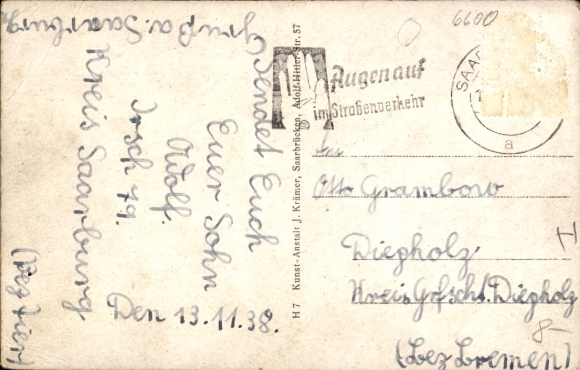 Gruß a. Saarburg
Sendet Euch
Euer Sohn
Adolf.
Irsch 79.
Kreis Saarburg
(Bez Trier)
Den 13.11.38.
H 7 Kunst-Anstalt J. Krämer, Saarbrücken, Adolf-Hitler-Str. 57
6600
Augen auf
im Straßenverkehr
SAAR
a
An
Otto Grambow
Diepholz
Kreis Grfsch. Diepholz
8-
(Bez Bremen)